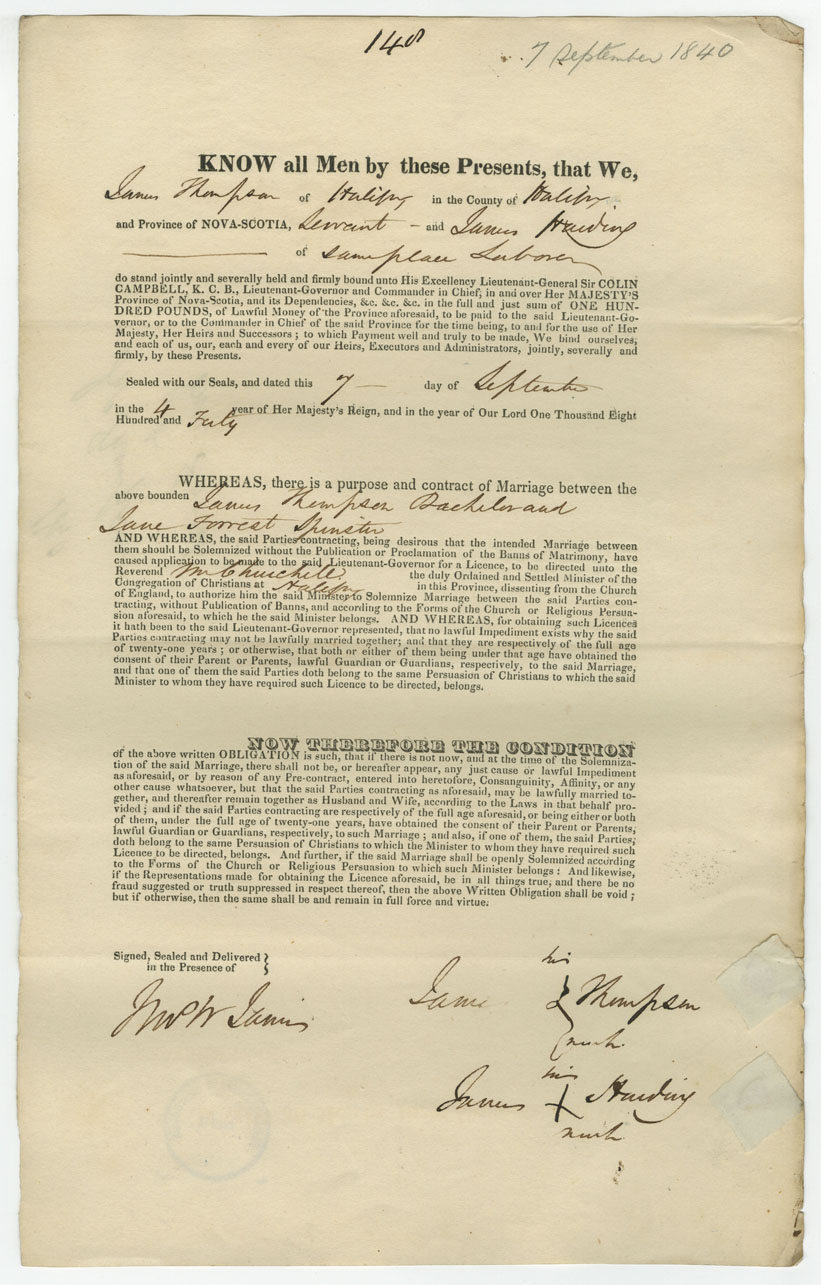 148
7 September 1840
KNOW all Men by these Presents, that We,
James Thompson of Halifax in the County of Halifax
and Province of NOVA-SCOTIA, Servant - and James Harding
of same place Laborer
do stand jointly and severally held and firmly bound unto His Excellency Lieutenant-General Sir COLIN
CAMPBELL, K. C. B., Lieutenant-Governor and Commander in Chief, in and over Her MAJESTY'S
Province of Nova-Scotia, and its Dependencies, &c. &c. &c. in the full and just sum of ONE HUN-
DRED POUNDS, of Lawful Money of the Province aforesaid, to be paid to the said Lieutenant-Go-
vernor, or to the Commander in Chief of the said Province for the time being, to and for the use of Her
Majesty, Her Heirs and Successors ; to which Payment well and truly to be made, We bind ourselves,
and each of us, our, each and every of our Heirs, Executors and Administrators, jointly, severally and
firmly, by these Presents.
Sealed with our Seals, and dated this 7 — day of September
in the 4 year of Her Majesty's Reign, and in the year of Our Lord One Thousand Eight
Hundred and Forty
WHEREAS, there is a purpose and contract of Marriage between the
above bounden James Thompson Bachelor and
Jane Forrest Spinster
AND WHEREAS, the said Parties contracting, being desirous that the intended Marriage between
them should be Solemnized without the Publication or Proclamation of the Banns of Matrimony, have
caused application to be made to the said Lieutenant-Governor for a Licence, to be directed unto the
Reverend Mr Churchill the duly Ordained and Settled Minister of the
Congregation of Christians at Halifax in this Province, dissenting from the Church
of England, to authorize him the said Minister to Solemnize Marriage between the said Parties con-
tracting, without Publication of Banns, and according to the Forms of the Church or Religious Persua-
sion aforesaid, to which he the said Minister belongs. AND WHEREAS, for obtaining such Licences
it hath been to the said Lieutenant-Governor represented, that no lawful Impediment exists why the said
Parties contracting may not be lawfully married together; and that they are respectively of the full age
of twenty-one years ; or otherwise, that both or either of them being under that age have obtained the
consent of their Parent or Parents, lawful Guardian or Guardians, respecively, to the said Marriage,
and that one of them the said Parties doth belong to the same Persuasion of Christians to which the said
Minister to whom they have required such Licence to be directed, belongs.
NOW THEREFORE THE CONDITION
of the above written OBLIGATION is such, that if there is not now, and at the time of the Solemniza-
tion of the said Marriage, there shall not be, or hereafter appear, any just cause or lawful Impediment
as aforesaid, or by reason of any Pre-contract, entered into heretofore, Consanguinity, Affinity, or any
other cause whatsoever, but that the said Parties contracting as aforesaid, may be lawfully married to-
gether, and thereafter remain together as Husband and Wife, according to the Laws in that behalf pro-
vided ; and if the said Parties contracting are respectively of the full age aforesaid, or being either or both
of them, under the full age of twenty-one years, have obtained the consent of their Parent or Parents,
lawful Guardian or Guardians, respectively, to such Marriage ; and also, if one of them, the said Parties,
doth belong to the same Persuasion of Christians to which the Minister to whom they have required such
Licence to be directed, belongs. And further, if the said Marriage shall be openly Solemnized according
to the Forms of the Church or Religious Persuasion to which such Minister belongs : And likewise,
if the Representations made for obtaining the Licence aforesaid, be in all things true, and there be no
fraud suggested or truth suppressed in respect thereof, then the above Written Obligation shall be void ;
but if otherwise, then the same shall be and remain in full force and virtue.
Signed, Sealed and Delivered
in the Presence of
his
James Thompson
mark
his
James X Harding
mark